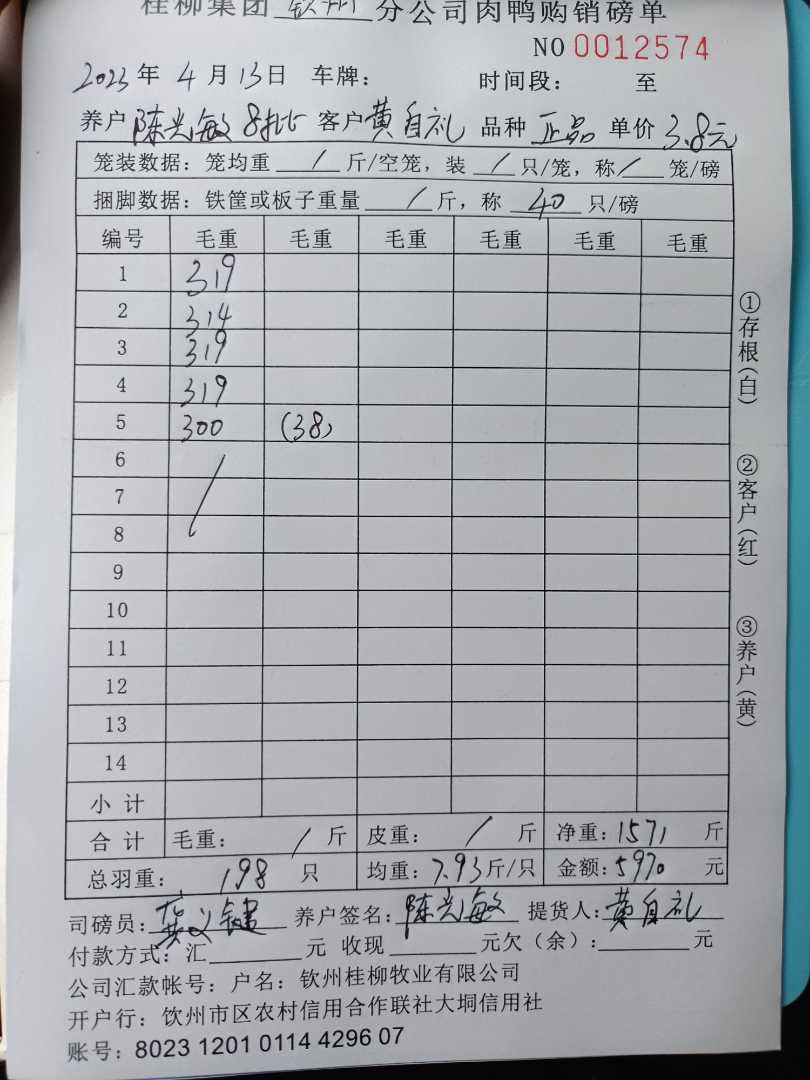 桂柳集团 钦州 分公司肉鸭购销磅单
NO 0012574
2023 年 4 月 13 日 车牌： 时间段： 至
养户 陈光敏 8批 客户 黄自礼 品种 正品 单价 3.8元
笼装数据：笼均重 / 斤/空笼，装 / 只/笼，称 / 笼/磅
捆脚数据：铁筐或板子重量 / 斤，称 40 只/磅
编号 毛重 毛重 毛重 毛重 毛重 毛重
1 319
2 314
3 319
4 319
5 300 (38)
6 /
7
8
9
10
11
12
13
14
小计
合计 毛重： / 斤 皮重： / 斤 净重：1571 斤
总羽重： 198 只 均重：7.93斤/只 金额：5970 元
司磅员：龚义键 养户签名：陈光敏 提货人：黄自礼
付款方式：汇 元 收现 元欠（余）： 元
公司汇款帐号：户名：钦州桂柳牧业有限公司
开户行：饮州市区农村信用合作联社大垌信用社
账号：8023 1201 0114 4296 07
①存根（白）
②客户（红）
③养户（黄）